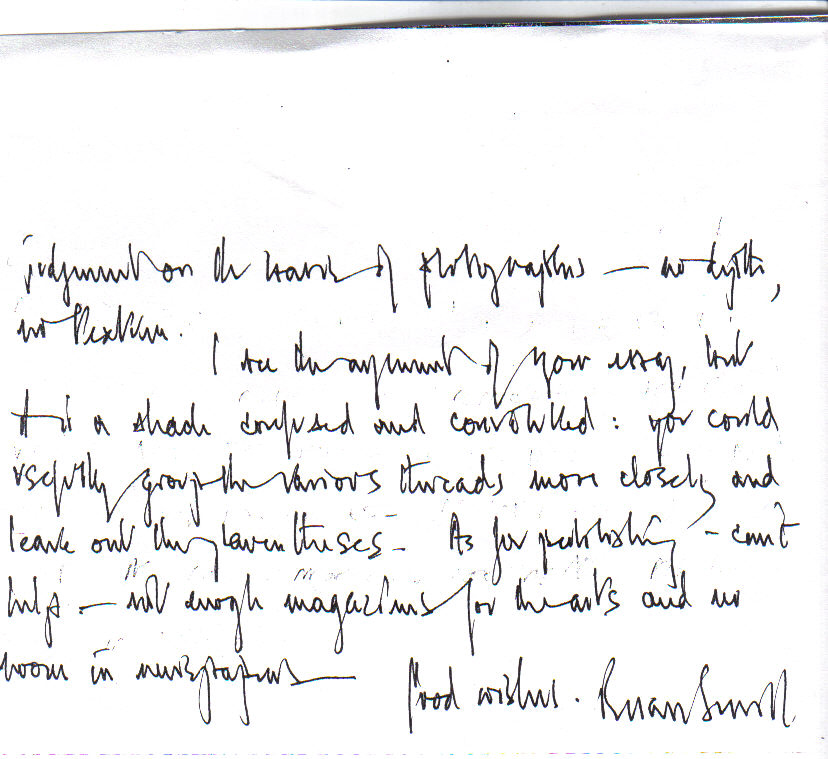 judgement on the basis of photographs — no depth,
no texture.
I see the argument of your essay, but
it is a shade confused and convoluted : you could
usefully group the various threads more closely and
leave out the parentheses — As for publishing — can't
help — not enough magazines for the arts and no
room in newspapers — Good wishes. Brian Sewell.